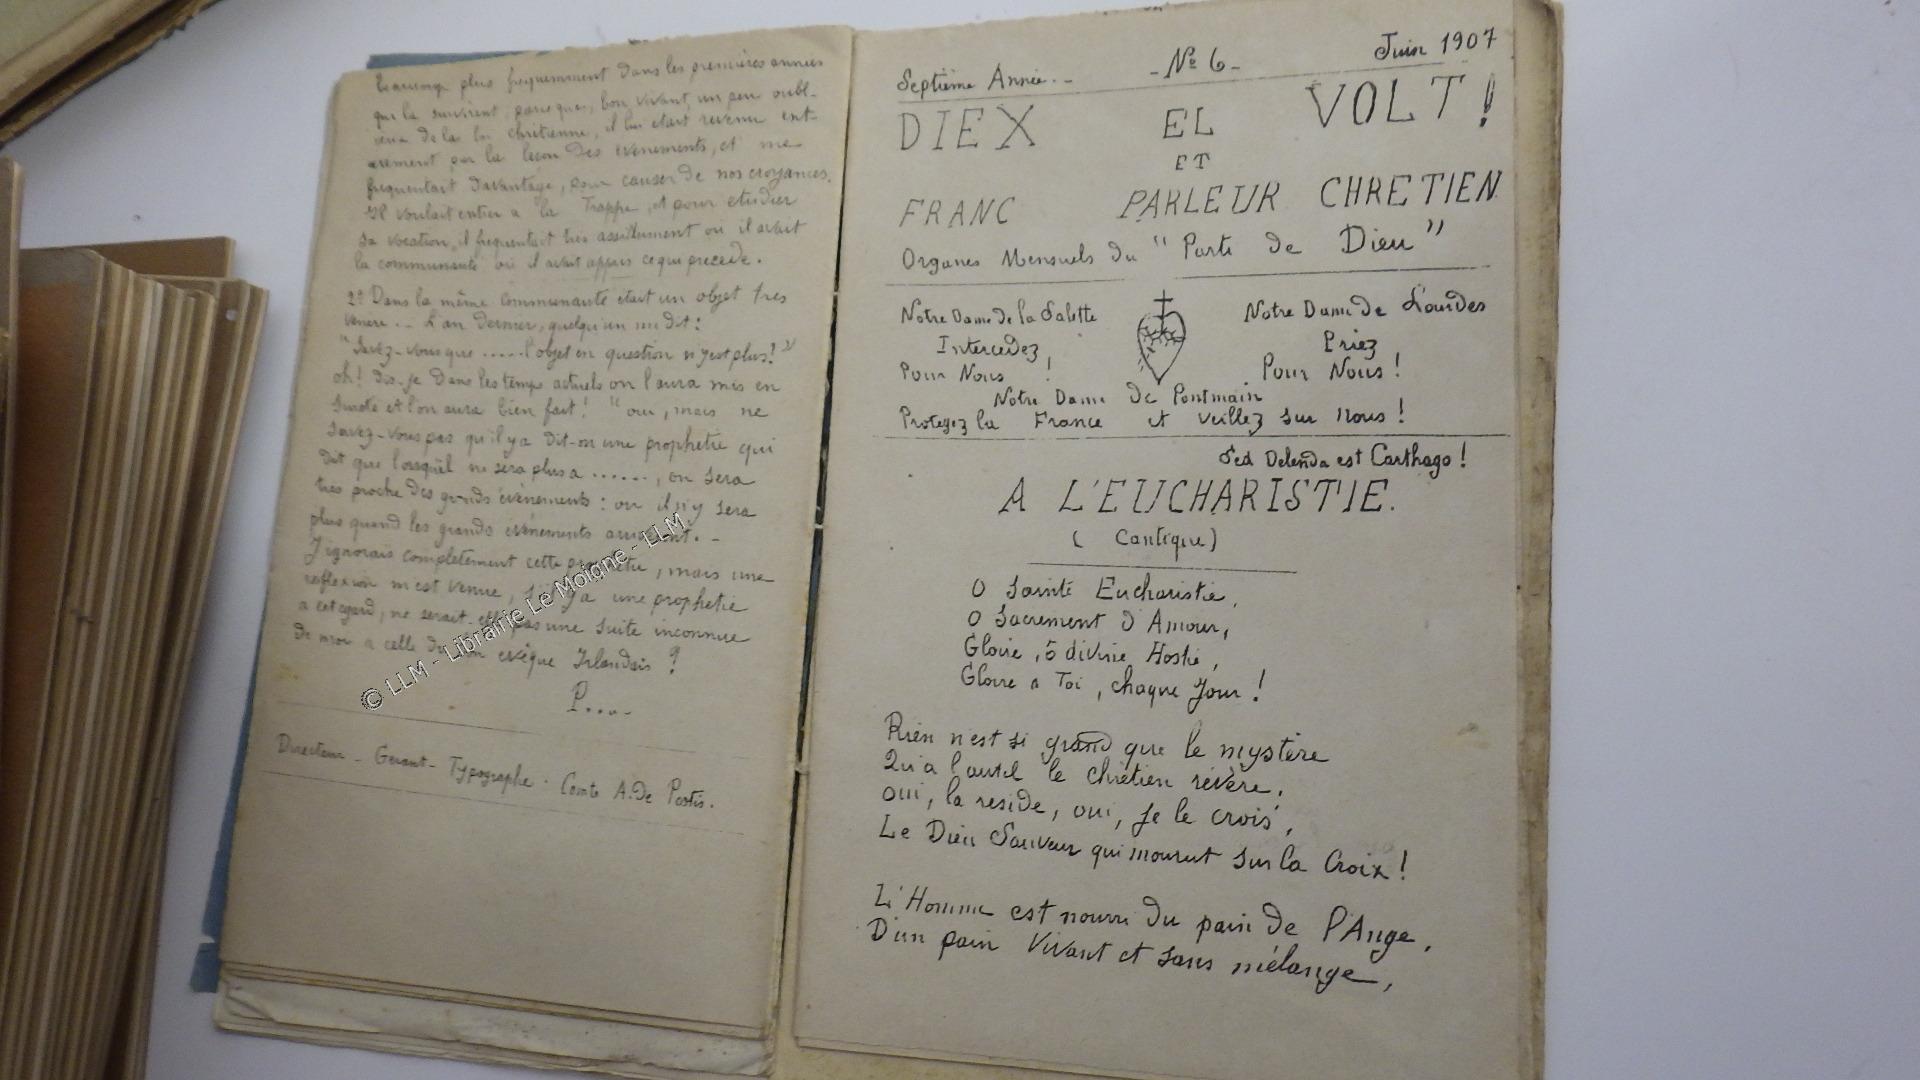 beaucoup plus frequemment dans les premières années
qui la suivirent, parce que, bon vivant, un peu oubli-
eux de la loi chrétienne, il lui était revenu enti-
erement par la leçon des évenements, et me
frequentait davantage, pour causer de nos croyances.
Il voulait entrer a la Trappe, et pour etudier
sa vocation, il frequentait très assidument ou il avait
la communauté où il avait appris ce qui precede.
2º Dans la même communauté était un objet tres
vénéré. - L'an dernier, quelqu'un me dit:
"Savez-vous que ..... l'objet en question n'y est plus!"
oh! dis-je dans les temps actuels on l'aura mis en
sureté et l'on aura bien fait! "oui, mais ne
savez-vous pas qu'il y a dit-on une prophetie qui
dit que lorsqu'il ne sera plus a ......, on sera
tres proche des grands évènements: ou il n'y sera
plus quand les grands évènements arriveront. -
J'ignorais completement cette prophetie, mais une
reflexion m'est venue, s'il y a une prophetie
a cet egard, ne serait-elle pas une suite inconnue
de moi a celle du bon evêque Irlandais ?
P....
Directeur - Gerant - Typographe. Comte A. De Postis.
© LLM - Librairie Le Moigne - LLM
Septième Année. - - Nº 6 - Juin 1907
DIEX EL VOLT !
ET
FRANC PARLEUR CHRETIEN
Organes Mensuels du "Parti de Dieu"
Notre Dame de la Salette
Intercedez
Pour Nous !
Notre Dame de Lourdes
Priez
Pour Nous !
Notre Dame de Pontmain
Protegez la France et veillez sur nous !
Sed Delenda est Carthago !
A L'EUCHARISTIE.
( Cantique )
O Sainte Eucharistie,
O Sacrement d'Amour,
Gloire, ô divine Hostie,
Gloire a Toi, chaque Jour !
Rien n'est si grand que le mystère
Qu'a l'autel le chrétien révère,
oui, la reside, oui, je le crois,
Le Dieu Sauveur qui mourut sur la Croix !
L'Homme est nourri du pain de l'Ange,
D'un pain Vivant et sans mélange,